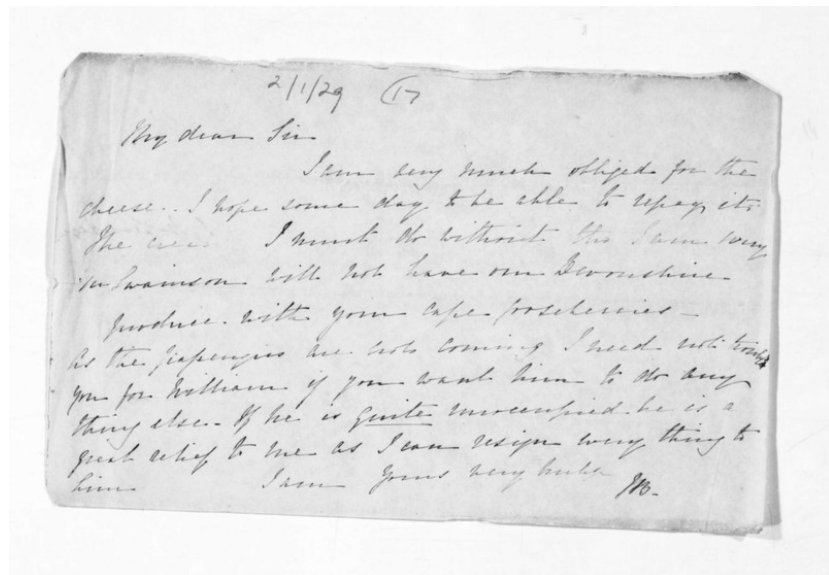 2/1/29 (17
My dear Sir
I am very much obliged for the
cheese. I hope some day to be able to repay it.
The I must do without tho I am sorry
Mr Swainson will not have our Devonshire
produce with your cape gooseberries –
As the are not coming I need not trouble
you for William if you want him to do any
thing else – If he is quite unoccupied he is a
great relief to me as I can resign every thing to
him I am yours very truly